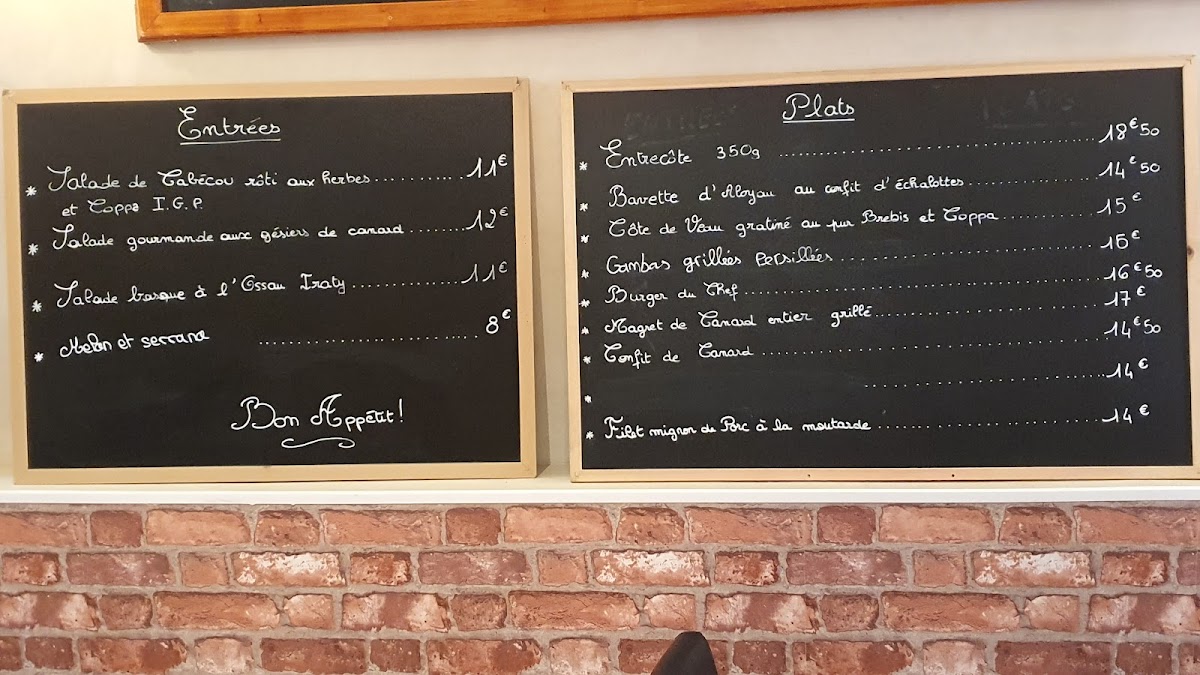 Entrées
* Salade de Cabécou rôti aux herbes .......... 11€
et Coppa I.G.P.
* Salade gourmande aux gésiers de canard ........ 12€
* Salade basque à l'Ossau Iraty ............... 11€
* Melon et serrano ........................ 8€
Bon Appétit!
Plats
* Entrecôte 350g ........................ 18€50
* Bavette d'Aloyau au confit d'échalottes ............ 14€50
* Côte de Veau gratiné au pur Brebis et Coppa .......... 15€
* Gambas grillées persillées ........................ 15€
* Burger du Chef ........................ 16€50
* Magret de Canard entier grillé ........................ 17€
* Confit de Canard ........................ 14€50
* ........................ 14€
* Filet mignon de Porc à la moutarde ........................ 14€